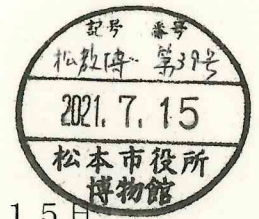 記号 番号
松教博 第39号
2021.7.15
松本市役所
博物館
15日